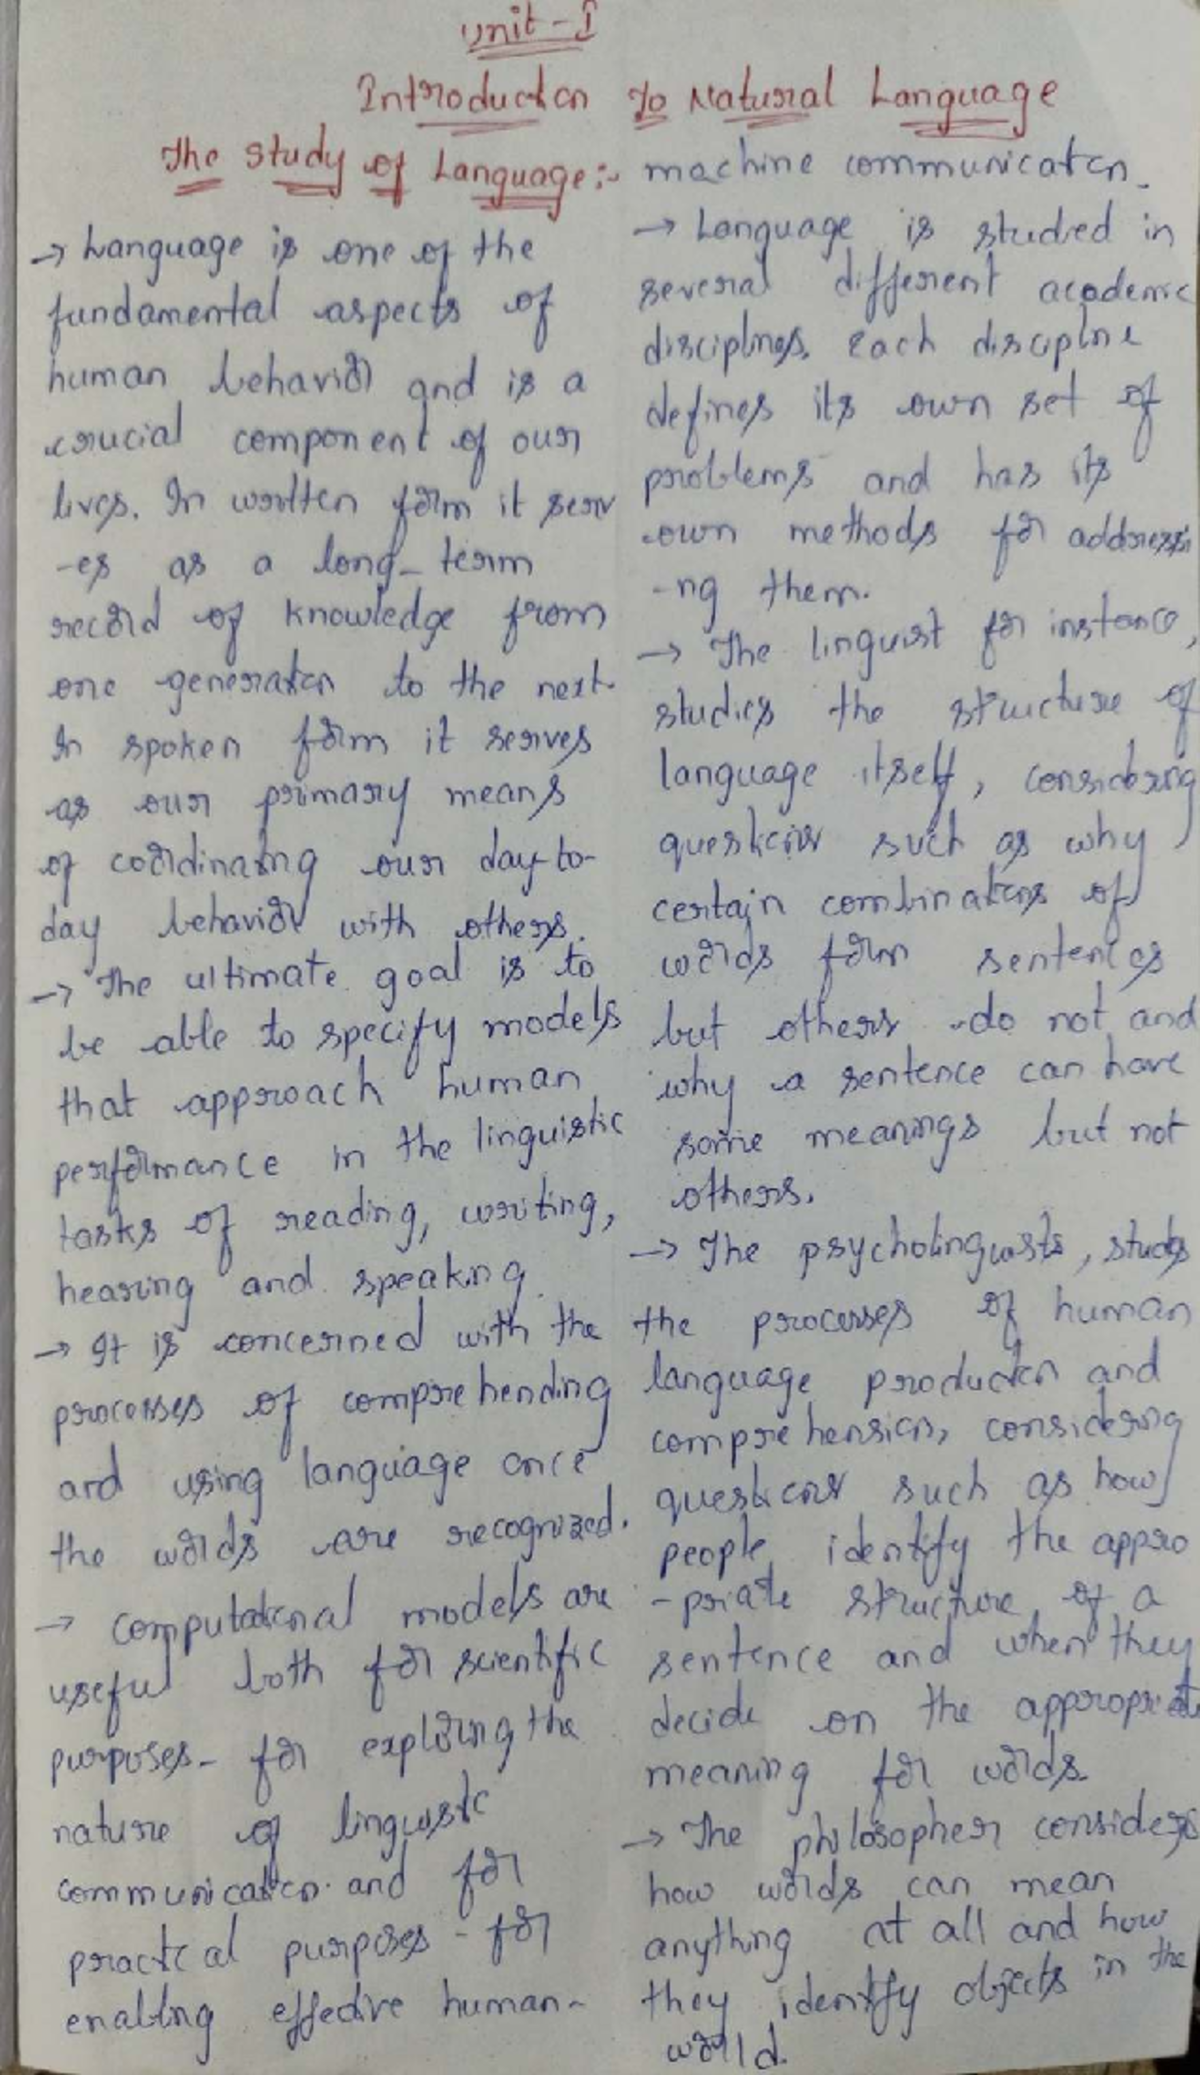 Unit-I
Introduction to Natural Language
The Study of Language:-
→ Language is one of the
fundamental aspects of
human behavior and is a
crucial component of our
lives. In written form it serv
-es as a long-term
record of knowledge from
one generation to the next.
In spoken form it serves
as our primary means
of coordinating our day-to-
day behavior with others.
→ The ultimate goal is to
be able to specify models
that approach human
performance in the linguistic
tasks of reading, writing,
hearing and speaking.
→ It is concerned with the
processes of comprehending
and using language once
the words are recognized.
→ computational models are
useful both for scientific
purposes- for exploring the
nature of linguistic
communication and for
practical purposes - for
enabling effective human-
machine communication.
→ Language is studied in
several different academic
disciplines. Each discipline
defines its own set of
problems and has its
own methods for addressi
-ng them.
→ The linguist for instance,
studies the structure of
language itself, considering
questions such as why
certain combinations of
words form sentences
but others do not and
why a sentence can have
some meanings but not
others.
→ The psycholinguists, studies
the processes of human
language production and
comprehension, considering
questions such as how
people identify the appro
-priate structure of a
sentence and when they
decide on the appropriate
meaning for words.
→ The philosopher considers
how words can mean
anything at all and how
they identify objects in the
world.